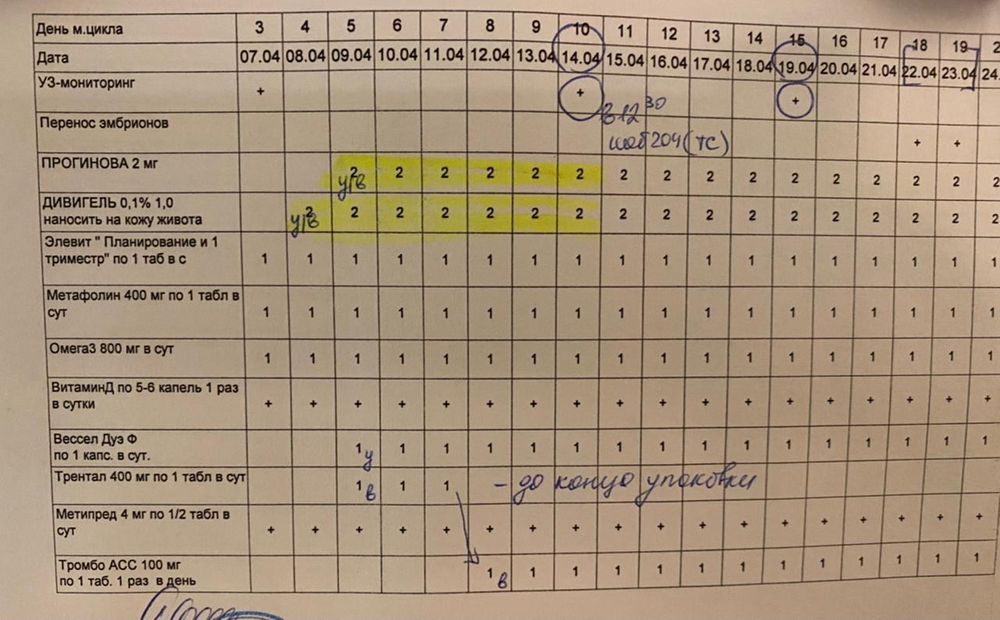 День м.цикла 3 4 5 6 7 8 9 10 11 12 13 14 15 16 17 18 19 2
Дата 07.04 08.04 09.04 10.04 11.04 12.04 13.04 14.04 15.04 16.04 17.04 18.04 19.04 20.04 21.04 22.04 23.04 24.
УЗ-мониторинг + + +
в 12 30
Перенос эмбрионов + +
каб 204 (ТС)
ПРОГИНОВА 2 мг 2 2 2 2 2 2 2 2 2 2 2 2 2 2 2 2
у/в
ДИВИГЕЛЬ 0,1% 1,0
наносить на кожу живота 2 2 2 2 2 2 2 2 2 2 2 2 2 2 2 2 2
у/в
Элевит " Планирование и 1
триместр" по 1 таб в с 1 1 1 1 1 1 1 1 1 1 1 1 1 1 1 1 1 1
Метафолин 400 мг по 1 табл в
сут 1 1 1 1 1 1 1 1 1 1 1 1 1 1 1 1 1 1
Омега3 800 мг в сут 1 1 1 1 1 1 1 1 1 1 1 1 1 1 1 1 1 1
ВитаминД по 5-6 капель 1 раз
в сутки + + + + + + + + + + + + + + + + + +
Вессел Дуэ Ф
по 1 капс. в сут. 1 у 1 1 1 1 1 1 1 1 1 1 1 1 1 1 1
Трентал 400 мг по 1 табл в сут 1 в 1 1 - до конца упаковки
Метипред 4 мг по 1/2 табл в
сут + + + + + + + + + + + + + + + + + +
Тромбо АСС 100 мг
по 1 таб. 1 раз в день 1 в 1 1 1 1 1 1 1 1 1 1 1 1